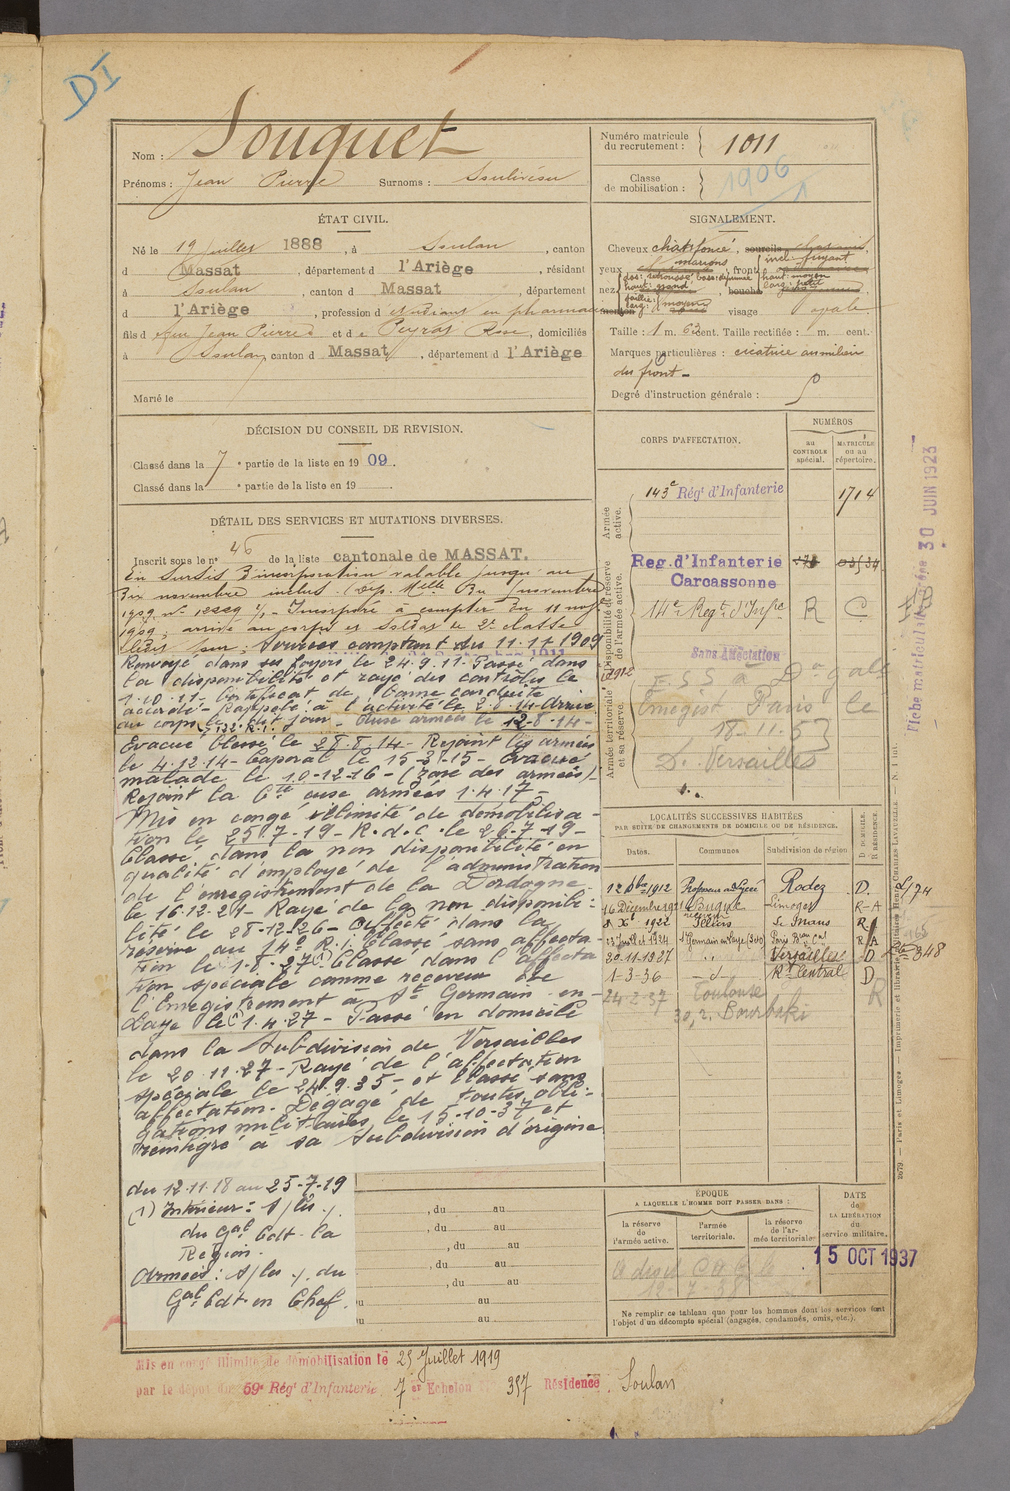 DI
Nom : Souquet
Prénoms : Jean Pierre Surnoms :
Numéro matricule du recrutement : 1011
Classe de mobilisation : 1906
ÉTAT CIVIL.
Né le 19 juillet 1888, à Soulan, canton
d Massat, département d l'Ariège, résidant
à Soulan, canton d Massat, département
d l'Ariège, profession d étudiant en pharmacie
fils d feu Jean Pierre et d e Peyrat Rose, domiciliés
à Soulan, canton d Massat, département d l'Ariège
Marié le
SIGNALEMENT.
Cheveux chat. foncé, sourcils
yeux marrons, front incl: fuyant haut: moyen larg: petit
nez dos: retroussé base: déprimé haut: grand saillie: larg: moyen, bouche
menton visage ovale
Taille : 1 m. 62 cent. Taille rectifiée : 1 m. cent.
Marques particulières : cicatrice au milieu
du front -
Degré d'instruction générale :
DÉCISION DU CONSEIL DE REVISION.
Classé dans la 7e partie de la liste en 1909.
Classé dans la e partie de la liste en 19
DÉTAIL DES SERVICES ET MUTATIONS DIVERSES.
Inscrit sous le n° 46 de la liste cantonale de MASSAT.
En sursis d'incorporation valable jusqu'au
dix novembre inclus. (Dép. Melle du novembre
1909 n° Incorporé à compter du 11 nov.
1909, arrivé au corps et soldat de 2e classe
services comptant du 11.11.1909
Renvoyé dans ses foyers le 24.9.11. Passé dans
la disponibilité et rayé des contrôles le
1.10.11 - Certificat de bonne conduite
accordé - Rappelé à l'activité le 2.8.14. Arrivé
au corps le dit jour - aux armées le 12.8.14 -
Evacué blessé le 28.8.14 - Rejoint les armées
le 4.12.14 - Caporal le 15-3-15 - Evacué
malade le 10-12-16 - (zone des armées)
Rejoint la Cie aux armées 1.4.17 -
Mis en congé illimité de démobilisa-
tion le 25.7-19 - R.d.C. le 26-7-19 -
Classé dans la non disponibilité en
qualité d'employé de l'administration
de l'enregistrement de la Dordogne
le 16.12.21 - Rayé de la non disponibi-
lité le 28-12-26 - Affecté dans la
réserve au 14e R.I. Classé sans affecta
tion le 1.8.27 (1) Classé dans l'affecta
tion spéciale comme receveur de
l'Enregistrement à St Germain-en-
Laye le 1.4.27 - Passé en domicile
dans la subdivision de Versailles
le 20.11.27 - Rayé de l'affectation
spéciale le 24.9.35 - et classé sans
affectation. Dégagé de toutes obli-
gations militaires le 15-10-37 et
réintégré à sa subdivision d'origine
du 12.11.18 au 25-7-19
(1) Intérieur: s/les y.
du Gal Cdt. la
Région.
Armées: s/les y. du
Gal Cdt. en Chef.
, du au
, du au
, du au
, du au
, du au
u au
u au
CORPS D'AFFECTATION.
NUMÉROS
au CONTROLE spécial.
MATRICULE ou au répertoire.
Armée active.
143e Régt d'Infanterie 1714
Disponibilité et réserve de l'armée active.
Reg. d'Infanterie
Carcassonne
14e Regt d'Infie R C
Sans Affectation
Armée territoriale et sa réserve.
Enregist Paris le
18-11-5
D. Versailles
LOCALITÉS SUCCESSIVES HABITÉES
PAR SUITE DE CHANGEMENTS DE DOMICILE OU DE RÉSIDENCE.
Dates. Communes Subdivision de région D DOMICILE. R RÉSIDENCE
12 8bre 1912 Professeur au Lycée Rodez D.
16 Décembre 1921 Bugue Limoges R-A
X 1922 receveur Le Mans R
23 Juillet 1924 St Germain en Laye (S et O) R A
20.11.1927 " Versailles D
1-3-36 - d - Rt Central D
24-2-37 Toulouse R
30, r. Bourbaki
174
348
Fiche matricule 30 JUIN 1923
ÉPOQUE
A LAQUELLE L'HOMME DOIT PASSER DANS :
la réserve de l'armée active.
l'armée territoriale.
la réserve de l'armée territoriale.
DATE de LA LIBÉRATION du service militaire.
15 OCT 1937
Ne remplir ce tableau que pour les hommes dont les services font
l'objet d'un décompte spécial (engagés, condamnés, omis, etc.).
Mis en congé illimité de démobilisation le 25 Juillet 1919
par le dépôt du 59e Régt d'Infanterie 7 er Echelon 357 Résidence. Soulan